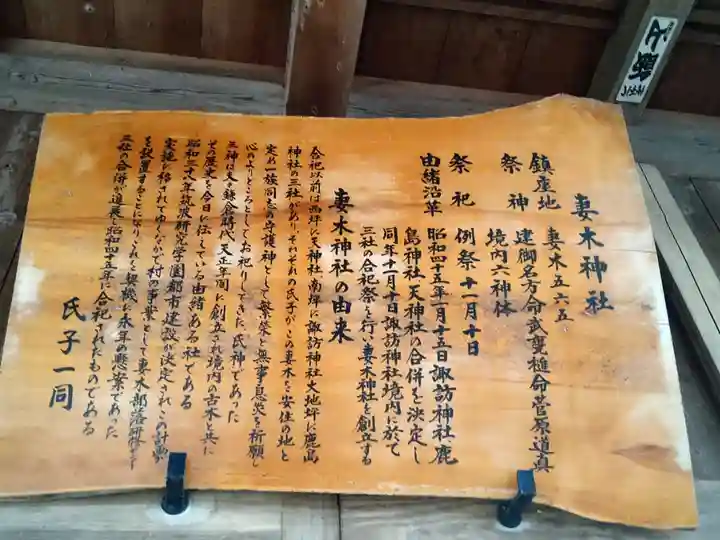 妻木神社
鎮座地 妻木五六五
祭神 建御名方命武甕槌命菅原道真
境内六神体
祭祀 例祭十一月十日
由緒沿革 昭和四十五年一月十五日諏訪神社鹿
島神社、天神社の合併を決定し
同年十一月十日諏訪神社境内に於て
三社の合祀祭を行い妻木神社を創立する
妻木神社の由来
合祀以前は西坪に天神社南坪に諏訪神社大地坪に鹿島
神社の三社があり、それぞれの氏子がこの妻木を安住の地と
定め一族同志の守護神として繁栄と無事息災を祈願し
心のよりどころとしてお祀りしてきた氏神であった
三神は夫々鎌倉時代、天正年間に創立され境内の古木と共に
その歴史を今日に伝えている由緒ある社である
昭和三十八年筑波研究学園都市建設が決定され、この計画が
実施に移されてゆくなかで村の事業として妻木部落研修
を設置することになりこれを契機に永年の懸案であった
三社の合併が進展し昭和四十五年に合祀されたものである
氏子一同